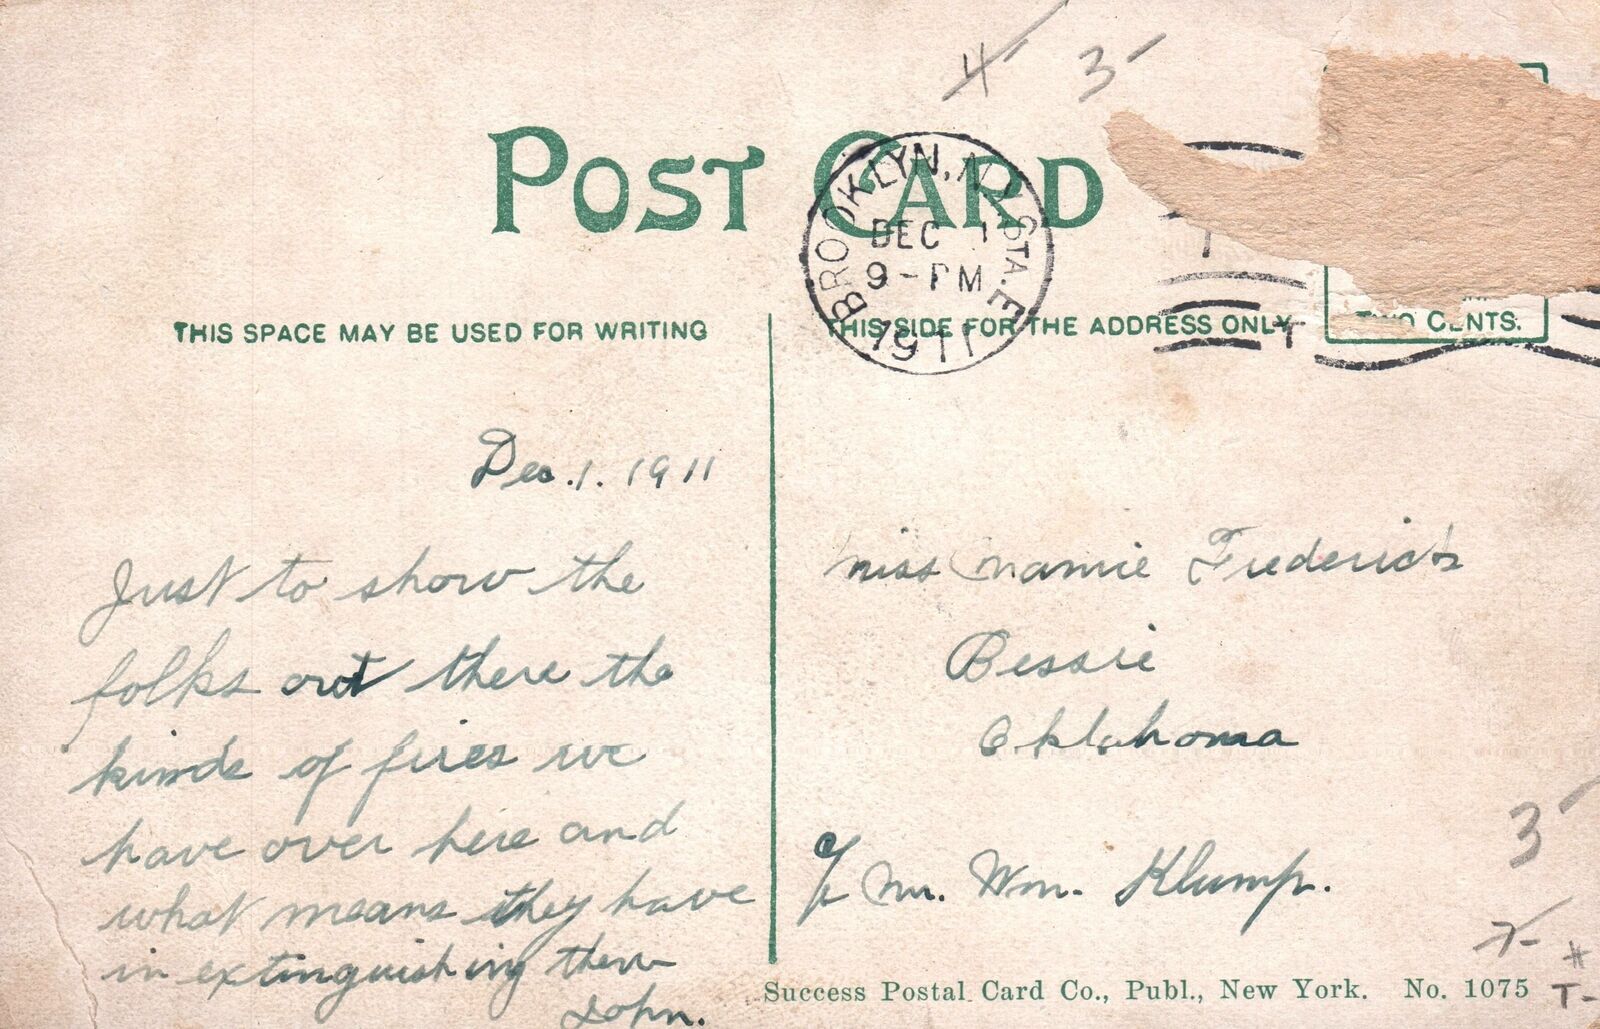 4- 3-
POST CARD
BROOKLYN, N.Y. STA. E
DEC 1
9-PM
1911
THIS SPACE MAY BE USED FOR WRITING
THIS SIDE FOR THE ADDRESS ONLY
TWO CENTS.
Dec. 1. 1911
Just to show the
folks out there the
kinds of fires we
have over here and
what means they have
in extinguishing them
John.
Miss Mamie Fredericks
Bessie
Oklahoma
c/o Mr. Wm. Klump.
3-
7-
#
T-
Success Postal Card Co., Publ., New York. No. 1075